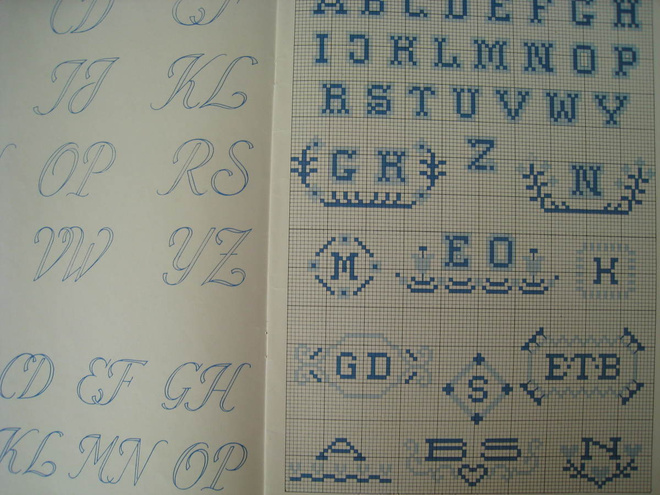 CD
IJ KL
OP RS
VW YZ
CD EF GH
KL MN OP
A B C D E F G H
I J K L M N O P
R S T U V W Y
Z
G H N
M E O
G D S E·T·B
A BS N